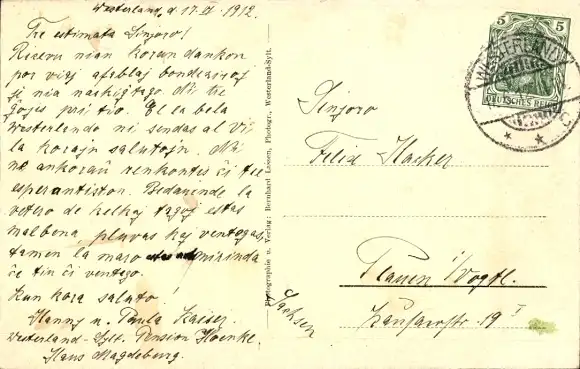 Westerland, d. 17. VI. 1912.
Tre estimata Sinjoro!
Ricevu nian koran dankon
por viaj afablaj bondeziroj
ni tre
gojas pri tio. El la bela
Westerlando ni sendas al Vi
la korajn salutojn. Mi
ne ankoraŭ renkontis ĉi tie
esperantiston. Bedaŭrinde la
vetero de kelkaj tagoj estas
malbona, pluvas kaj ventegas,
tamen la maro estas admirinda
ĉe tiu ĉi ventego.
Kun kora saluto!
Hanny u. Paula Kaiser.
Westerland-Sylt. Pension Hoenke.
Haus Magdeburg.
Photographie u. Verlag: Bernhard Lassen, Photogr., Westerland-Sylt.
5 5
DEUTSCHES REICH
WESTERLAND
Sinjoro
Felix Hacker
Plauen i/Vogtl.
19 I
Sachsen